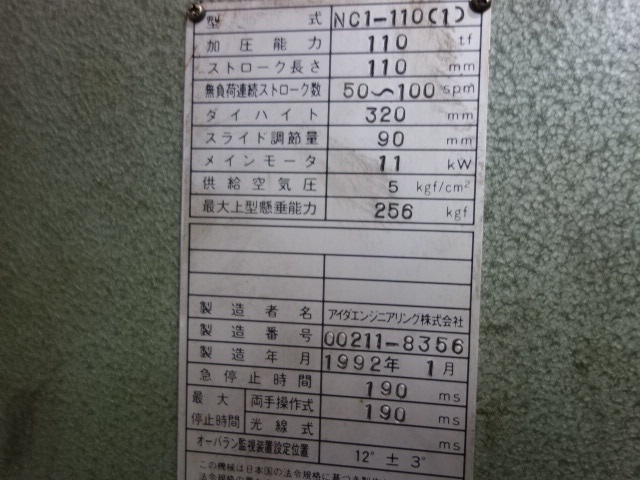 型式 NC1-110(1)
加圧能力 110 tf
ストローク長さ 110 mm
無負荷連続ストローク数 50〜100 spm
ダイハイト 320 mm
スライド調節量 90 mm
メインモータ 11 kW
供給空気圧 5 kgf/cm²
最大上型懸垂能力 256 kgf
製造者名 アイダエンジニアリング株式会社
製造番号 00211-8356
製造年月 1992年 1月
急停止時間 190 ms
最大停止時間 両手操作式 190 ms
光線式 ms
オーバラン監視装置設定位置 12° ± 3°
この機械は日本国の法令規格に基づき製作